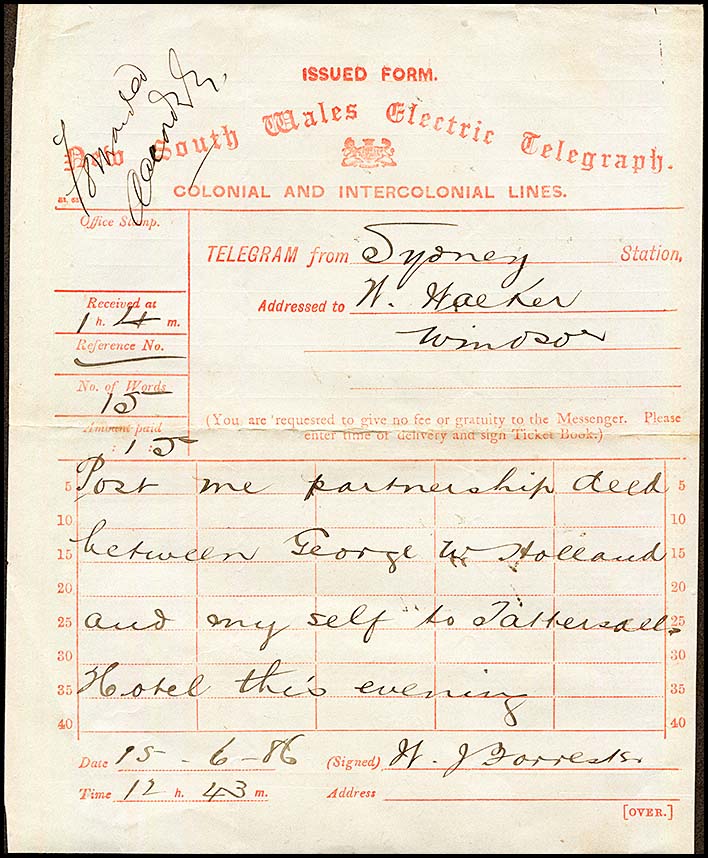 ISSUED FORM.
Forwarded
Accordly.
New South Wales Electric Telegraph.
COLONIAL AND INTERCOLONIAL LINES.
Office Stamp.
TELEGRAM from Sydney Station,
Addressed to W. Walker
Windsor
Received at
1 h. 4 m.
Reference No.
No. of Words
15
Amount paid
1 : 5
(You are requested to give no fee or gratuity to the Messenger. Please
enter time of delivery and sign Ticket Book.)
5 Post me partnership deed 5
10 10
15 between George W Holland 15
20 20
25 and my self to Tattersalls 25
30 30
35 Hotel this evening 35
40 40
Date 15 - 6 - 86 (Signed) W. J Forrester
Time 12 h. 43 m. Address
[OVER.]